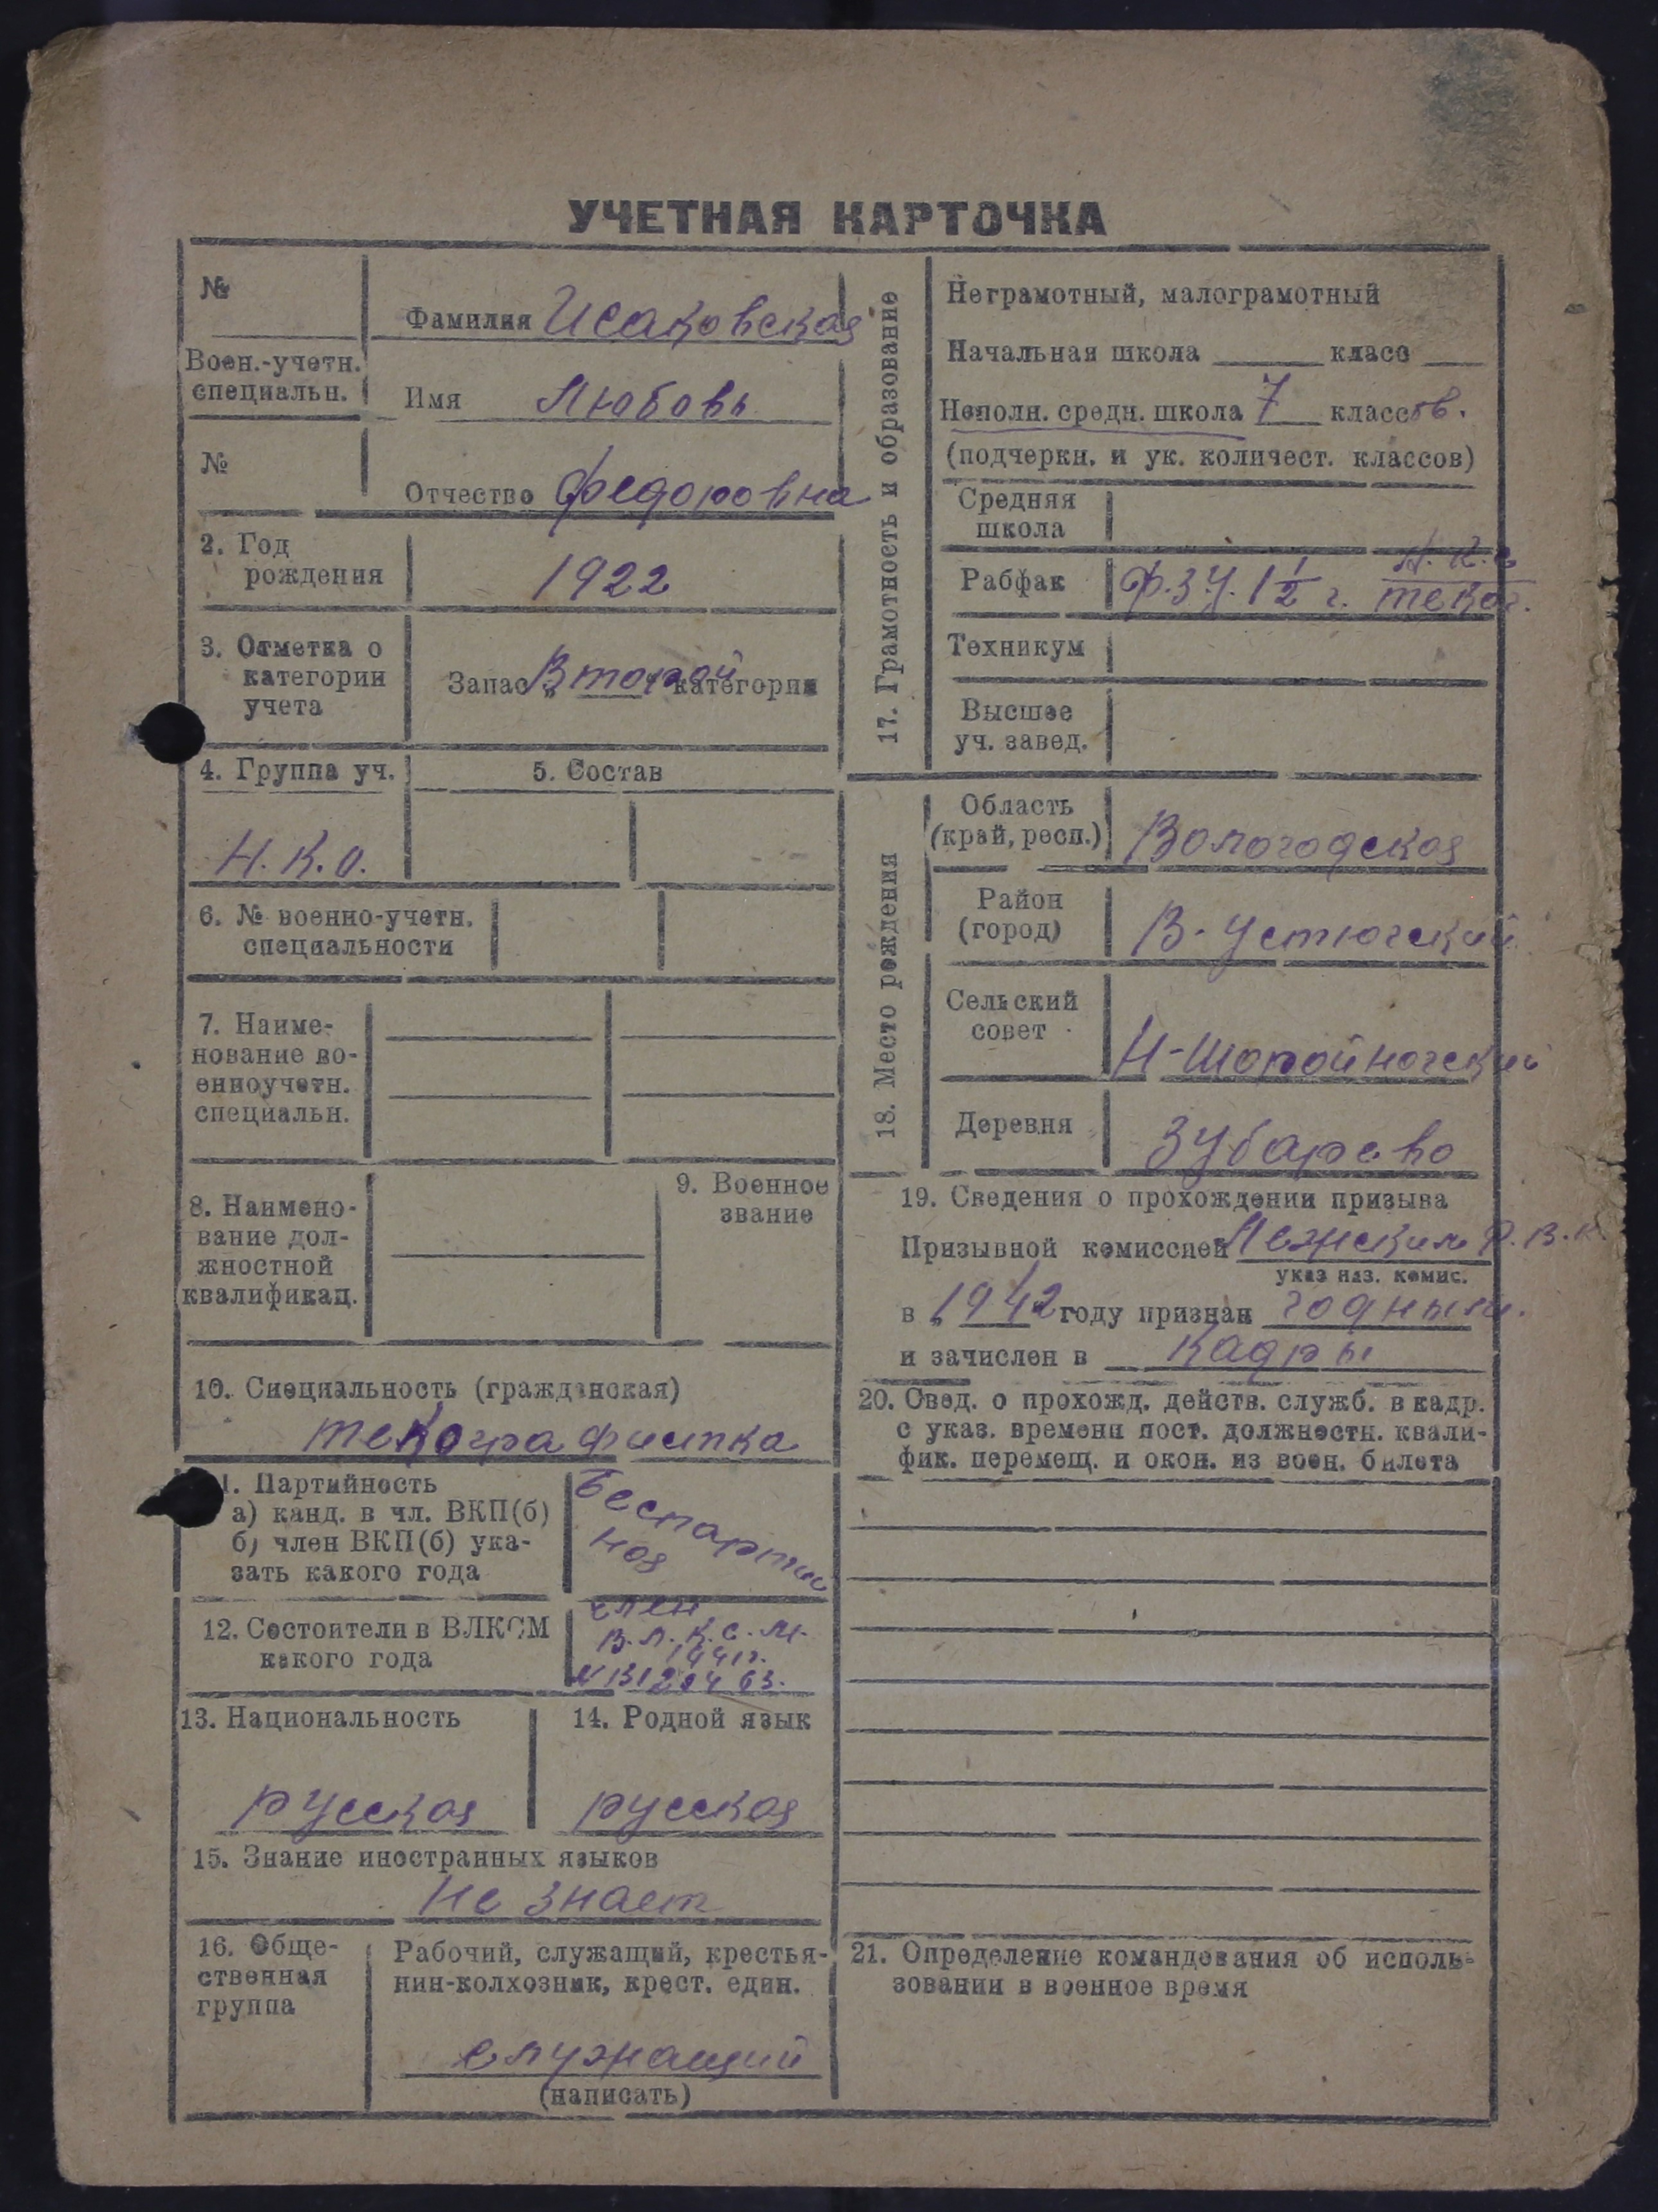 УЧЕТНАЯ КАРТОЧКА
№
Фамилия Исаковская
Воен.-учетн.
специальн.
Имя Любовь
№
Отчество Федоровна
2. Год
рождения
1922
3. Отметка о
категории
учета
Запас „Второй категории
4. Группа уч.
5. Состав
Н.К.О.
6. № военно-учетн.
специальности
7. Наиме-
нование во-
енноучетн.
специальн.
8. Наимено-
вание дол-
жностной
квалификац.
9. Военное
звание
10. Специальность (гражданская)
телографистка
1. Партийность
а) канд. в чл. ВКП(б)
б) член ВКП(б) ука-
зать какого года
Беспартий
ная
12. Состоител и в ВЛКСМ
какого года
член
В.Л.К.С.М.
1941г.
13. Национальность
русская
14. Родной язык
русская
15. Знание иностранных языков
Не знает
16. Обще-
ственная
группа
Рабочий, служащий, крестья-
нин-колхозник, крест. един.
служащий
(написать)
17. Грамотность и образование
Неграмотный, малограмотный
Начальная школа класс
Неполн. средн. школа 7 классов.
(подчеркн. и ук. количест. классов)
Средняя
школа
Рабфак
Ф.З.У. 1 1/2 г.
Техникум
Высшее
уч. завед.
18. Место рождения
Область
(край, респ.)
Вологодская
Район
(город)
В-Устюгский
Сельский
совет
Деревня
Зубарево
19. Сведения о прохождении призыва
Призывной комиссией Лежским Р.В.К
указ наз. комис.
в „1942 году признан годным.
и зачислен в кадры
20. Свед. о прохожд. действ. служб. в кадр.
с указ. времени пост. должностн. квали-
фик. перемещ. и окон. из воен. билета
21. Определение командования об исполь-
зовании в военное время